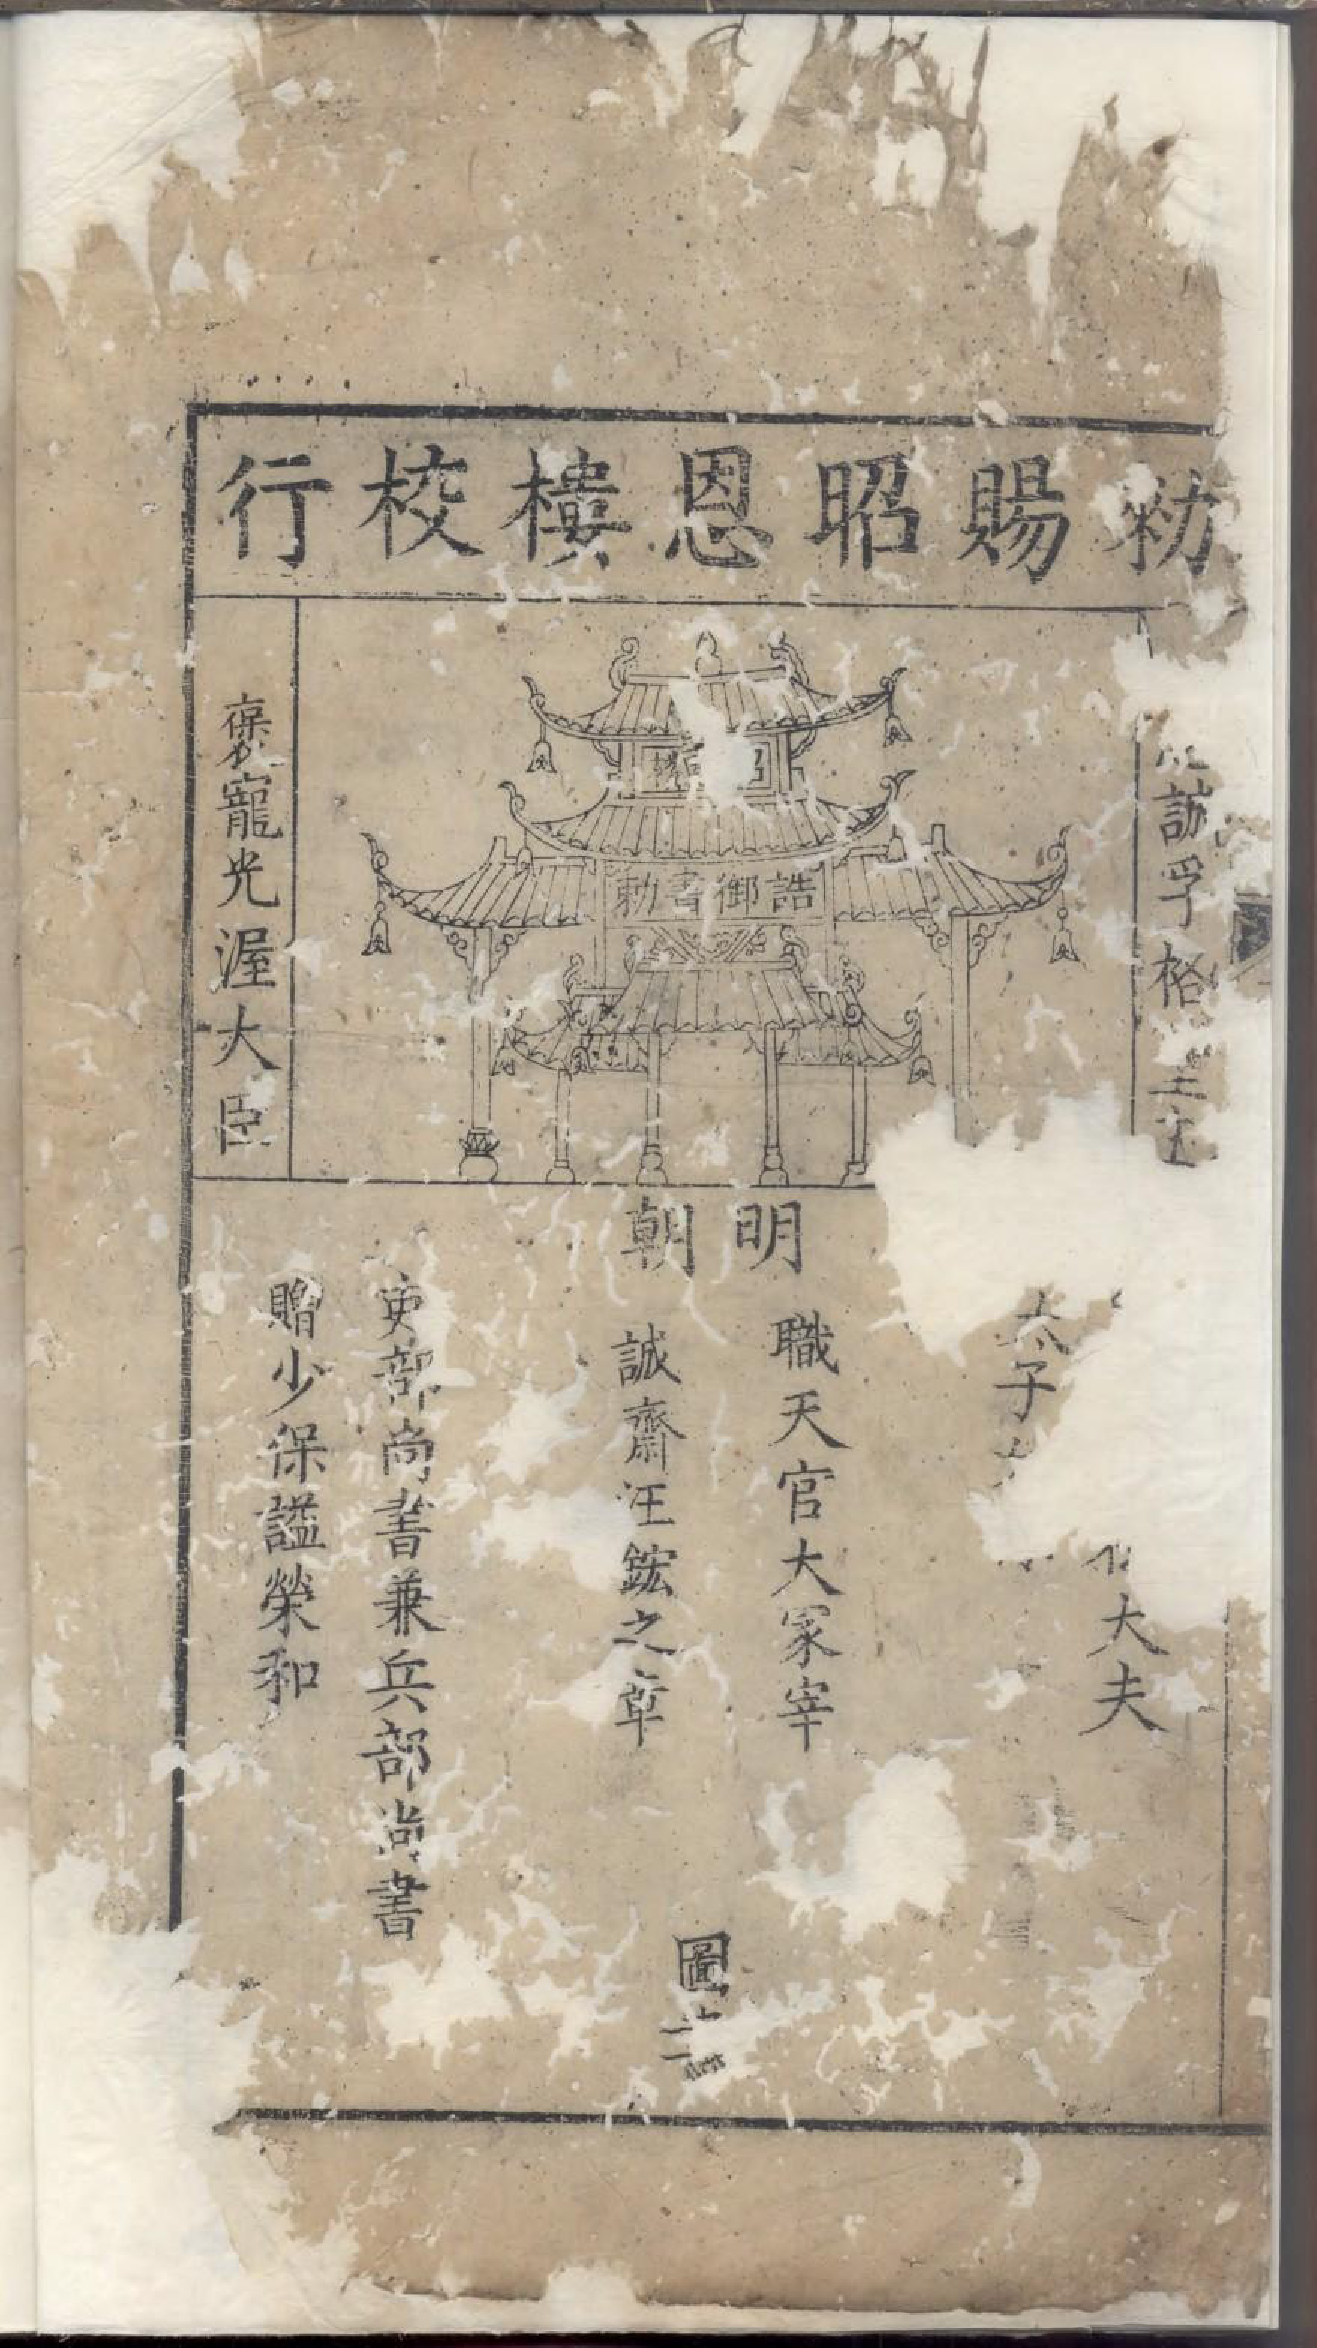 勑賜昭恩樓校行
訪孚格
褒寵光渥大臣
誥御書勅
明朝
大夫
太子
職天官大冢宰
誠齋汪鋐之章
吏部尚書兼兵部尚書
贈少保謚榮和
圖